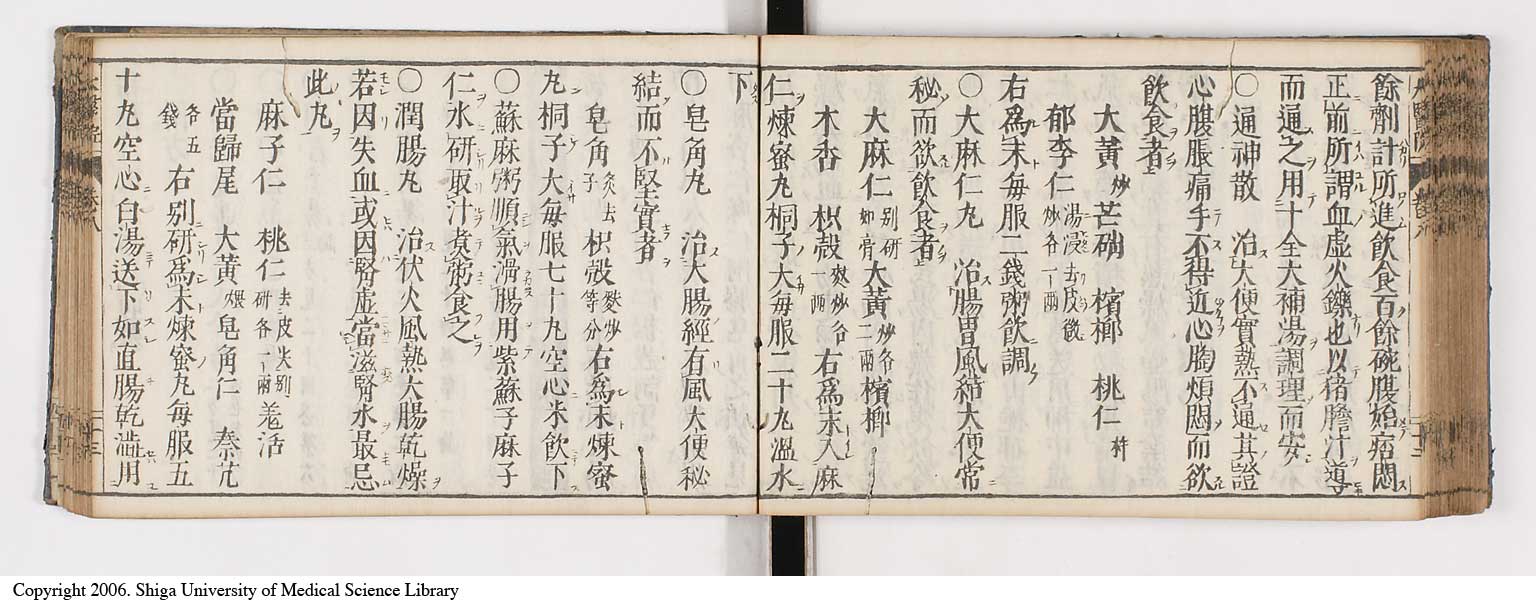 餘劑計所進飲食百餘碗腹始痞悶
正前所謂血虛火鑠也以猪膽汁導
而通之用十全大補湯調理而安
○通神散　治大便實熱不通其證
心腹脹痛手不得近心胸煩悶而欲
飲食者
大黃炒芒硝　檳榔　桃仁
郁李仁湯浸去皮微炒各一兩
右爲末每服二錢粥飲調
○大麻仁丸　治腸胃風結大便常
秘而欲飲食者
大麻仁别研如膏大黃炒各二兩檳榔
木香　枳殼麩炒各一兩右爲末入麻
仁煉蜜丸桐子大每服二十丸溫水
下
○皂角丸　治大腸經有風大便秘
結而不堅實者
皂角炙去子枳殼麩炒等分右爲末煉蜜
丸桐子大每服七十丸空心米飲下
○蘇麻粥順氣滑腸用紫蘇子麻子
仁水研取汁煮粥食之
○潤腸丸　治伏火風熱大腸乾燥
若因失血或因腎虛當滋腎水最忌
此丸
麻子仁　桃仁去皮尖别研各一兩羗活
當歸尾　大黃煨皂角仁　秦艽
各五錢　右别研爲末煉蜜丸每服五
十丸空心白湯送下如直腸乾澁用
Copyright 2006. Shiga University of Medical Science Library